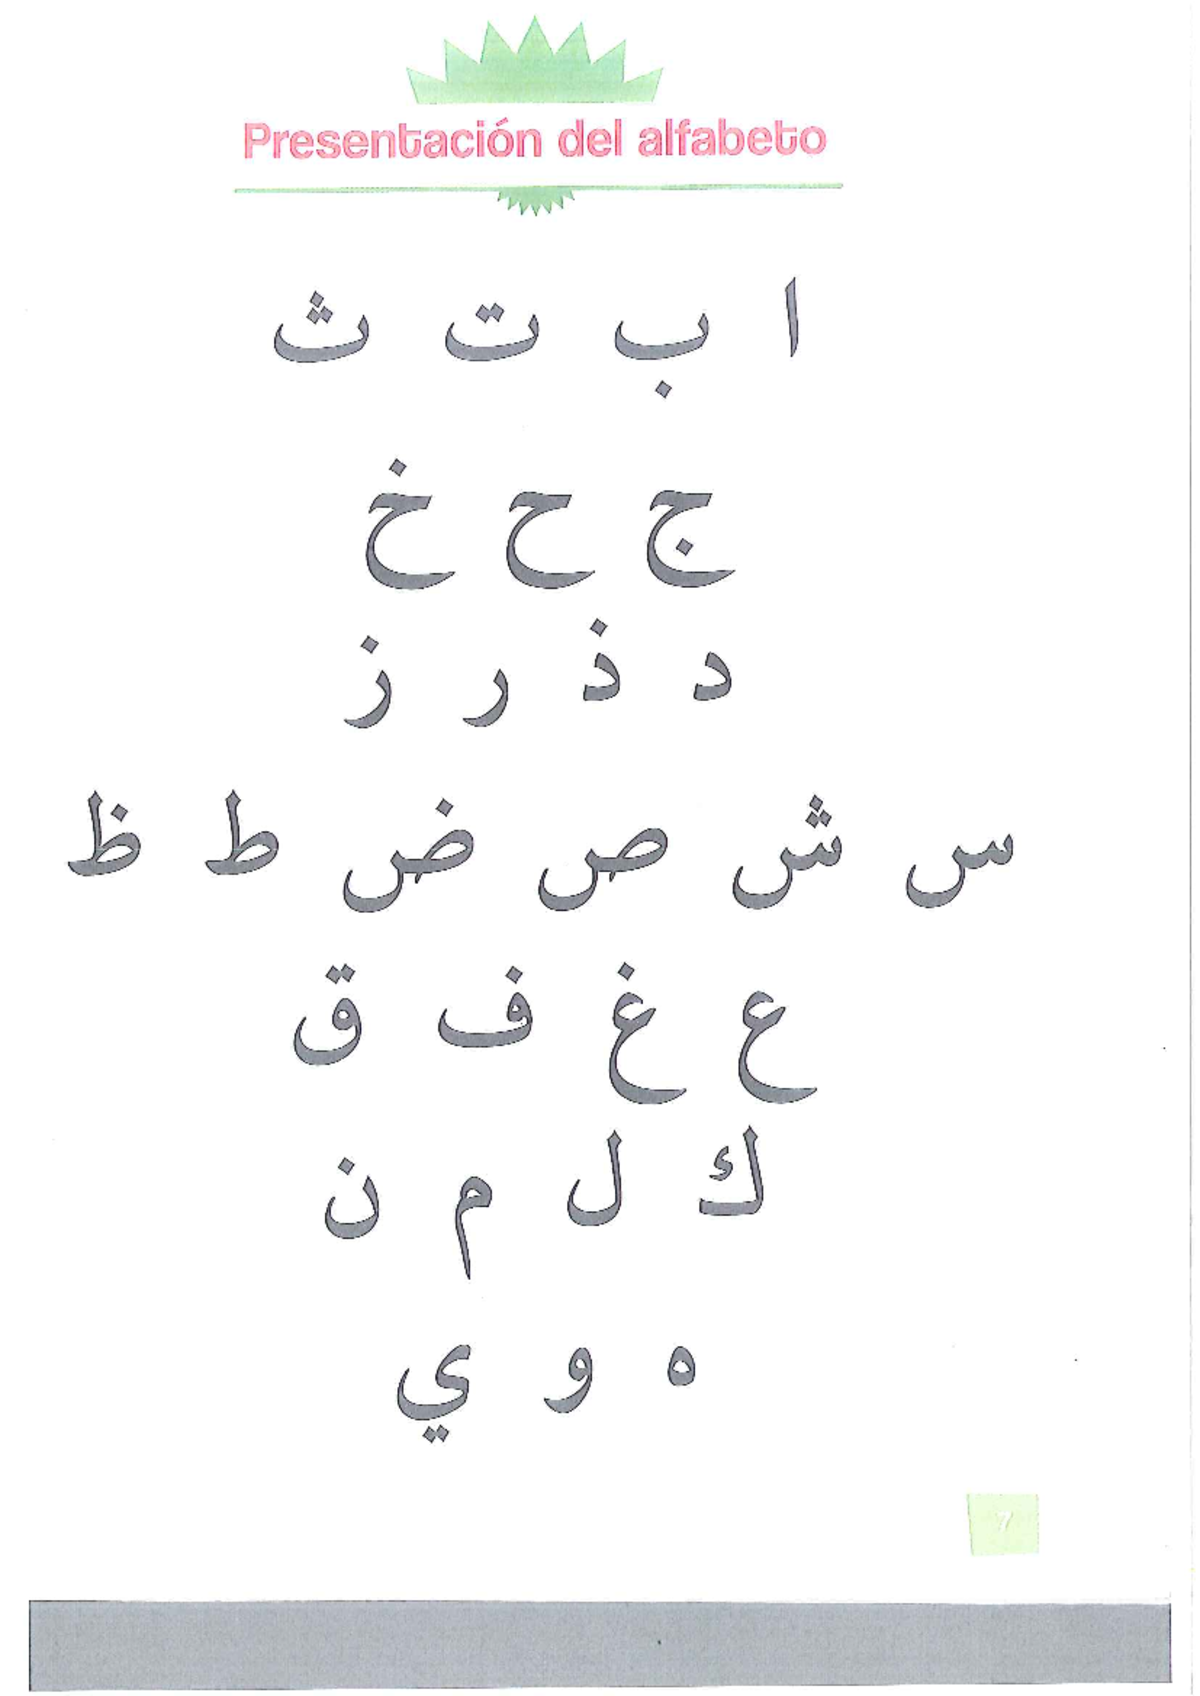 Presentación del alfabeto
ا ب ت ث
ج ح خ
د ذ ر ز
س ش ص ض ط ظ
ع غ ف ق
ك ل م ن
ه و ي
7